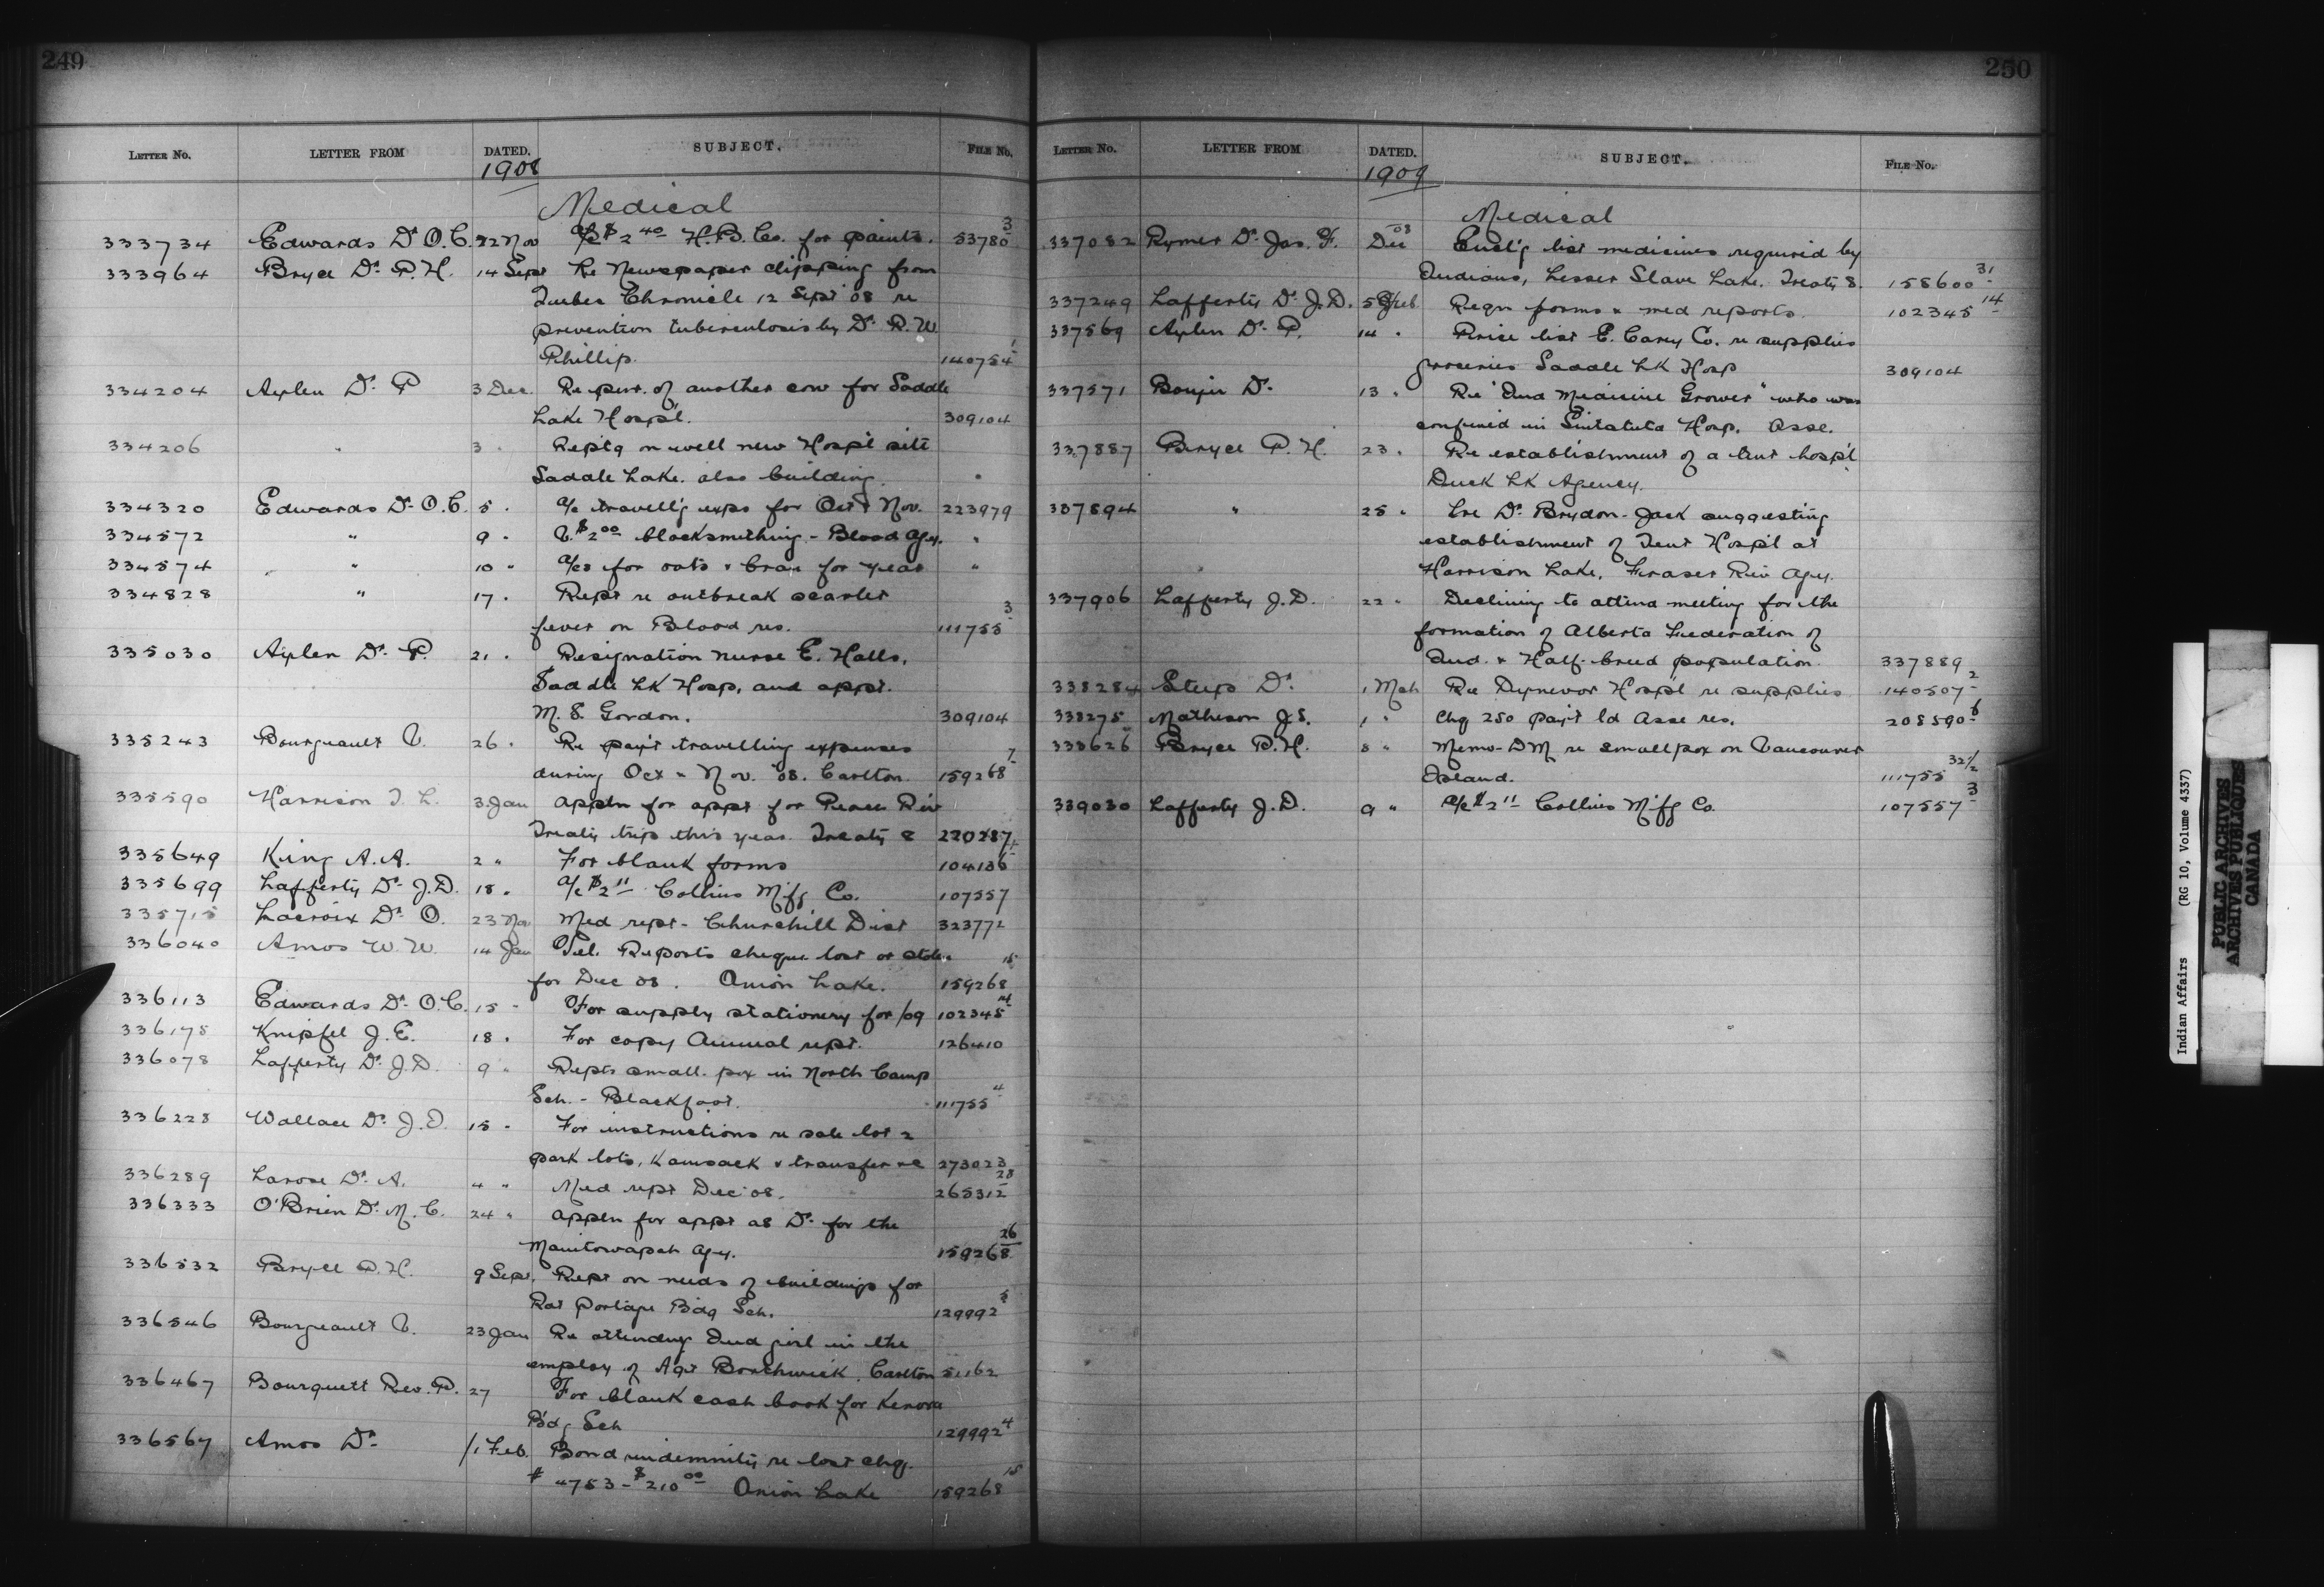 249
LETTER NO. LETTER FROM DATED. SUBJECT. FILE NO.
1908
Medical
333734 Edwards Dr O.C. 22 Nov a/c $2 40 H.B. Co. for paints. 53780 3
333964 Bryce Dr. P.H. 14 Sept Re Newspaper clipping from
Quebec Chronicle 12 Sept 08 re
prevention tuberculosis by Dr. R.W.
Phillip. 140754 1
334204 Aylen Dr. P 3 Dec. Re pur. of another cow for Saddle
Lake Hosp'l. 309104
334206 " 3 " Rept'g on well new Hosp'l site
Saddle Lake. also building. "
334320 Edwards Dr. O.C. 5 " a/c travell'g exps for Oct & Nov. 223979
334572 " 9 " V. $2 00 blacksmithing - Blood Agy. "
334574 " 10 " a/cs for oats & bran for year "
334828 " 17 " Rept re outbreak scarlet
fever on Blood res. 111755 3
335030 Aylen Dr. P. 21 " Resignation nurse E. Halls,
Saddle Lk Hosp, and appt.
M. S. Gordon. 309104
335243 Bourgeault V. 26 " Re pay't travelling expenses
during Oct & Nov. '08. Carlton. 159268 7
335590 Harrison T. L. 3 Jan Appln for appt for Peace Riv
Treaty trip this year. Treaty 8 220287
335649 King A. A. 2 " For blank forms 104136
335699 Lafferty Dr. J.D. 18 " a/c $2 11 Collins M'f'g Co. 107557
335715 Lacroix Dr. O. 23 Nov Med rept - Churchill Dist 323772
336040 Amos W. W. 14 Jan Tel. Reports cheque lost or stolen
for Dec 08. Onion Lake. 159268 15
336113 Edwards Dr. O.C. 15 " For supply stationery for /09 102345 14
336175 Knipfel J. E. 18 " For copy Annual rept. 126410
336078 Lafferty Dr. J.D. 9 " Repts small-pox in North Camp
Sch. - Blackfoot. 111755 4
336228 Wallace Dr. J. D. 15 " For instructions re sale lot 2
park lots, Kamsack & transfer re 273023
336289 Larose Dr. A. 4 " Med rept Dec '08. 265312 28
336333 O'Brien Dr. M. C. 24 " Appln for appt as Dr. for the
Manitowapah Agy. 159268 26
336532 Bryce P.H. 9 Sept. Rept on needs of buildings for
Rat Portage B'd'g Sch. 129992 3
336546 Bourgeault V. 23 Jan Re attending Ind girl in the
employ of Agt Borthwick. Carlton 51162
336467 Bourquett Rev. P. 27 For blank cash book for Kenora
B'd'g Sch 129992 4
336567 Amos Dr. 1 Feb. Bond indemnity re lost chq.
# 4753 - $210 00 Onion Lake 159268 15
250
LETTER NO. LETTER FROM DATED. SUBJECT. FILE NO.
1909
Medical
337082 Rymer Dr. Jas. F. Dec 08 Encl'g list medicines required by
Indians, Lesser Slave Lake. Treaty 8. 158600 31
337249 Lafferty Dr. J.D. 5 Feb Reqn forms & med reports. 102345 14
337569 Aylen Dr. P. 14 " Price list E. Carey Co. re supplies
groceries Saddle Lk Hosp 309104
337571 Bouju Dr. 13 " Re "Ind Medicine Grower" who was
confined in Sintaluta Hosp. Asse.
337887 Bryce P. H. 23 " Re establishment of a tent hosp'l
Duck Lk Agency.
337894 " 25 " Lre Dr. Brydon-Jack suggesting
establishment of Tent Hosp'l at
Harrison Lake, Fraser Riv Agy.
337906 Lafferty J.D. 22 " Declining to attend meeting for the
formation of Alberta Federation of
Ind. & Half-breed population. 337889
338284 Steep Dr. 1 Mch Re Dynevor Hosp'l re supplies 140507 2
338275 Matheson J.S. 1 " Chq 250 pay't ld Asse res. 208590 6
338626 Bryce P.H. 8 " Memo - DM re smallpox on Vancouver
Island. 111755 32 1/2
339030 Lafferty J.D. 9 " a/c $2 11 Collins M'f'g Co. 107557 3
Indian Affairs (RG 10, Volume 4337)
PUBLIC ARCHIVES
ARCHIVES PUBLIQUES
CANADA